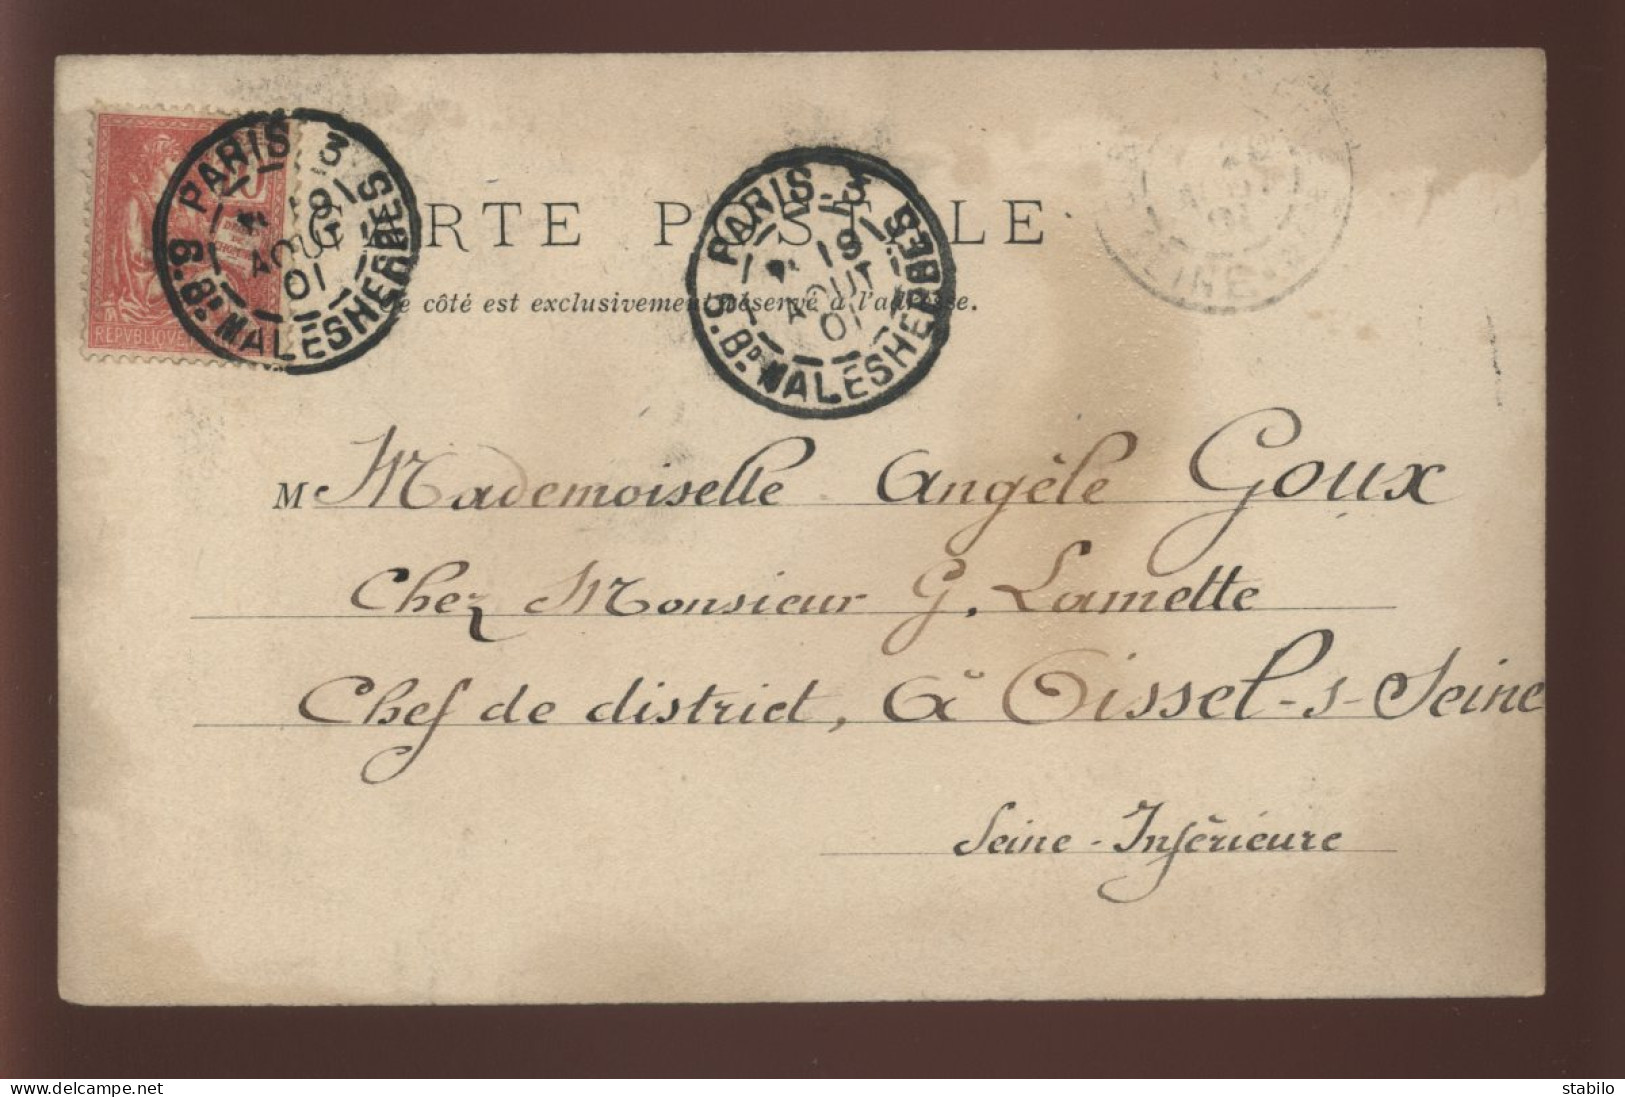 CARTE POSTALE
Ce côté est exclusivement réservé à l'adresse.
REPVBLIQVE
PARIS 3
19
AOUT
01
6. Bᴅ MALESHERBES
PARIS. 3
19
AOUT
01
6. Bᴅ MALESHERBES
AOUT
01
M Mademoiselle Angèle Goux
Chez Monsieur G. Lamette
Chef de district, à Oissel-s-Seine
Seine-Inférieure
stabilo